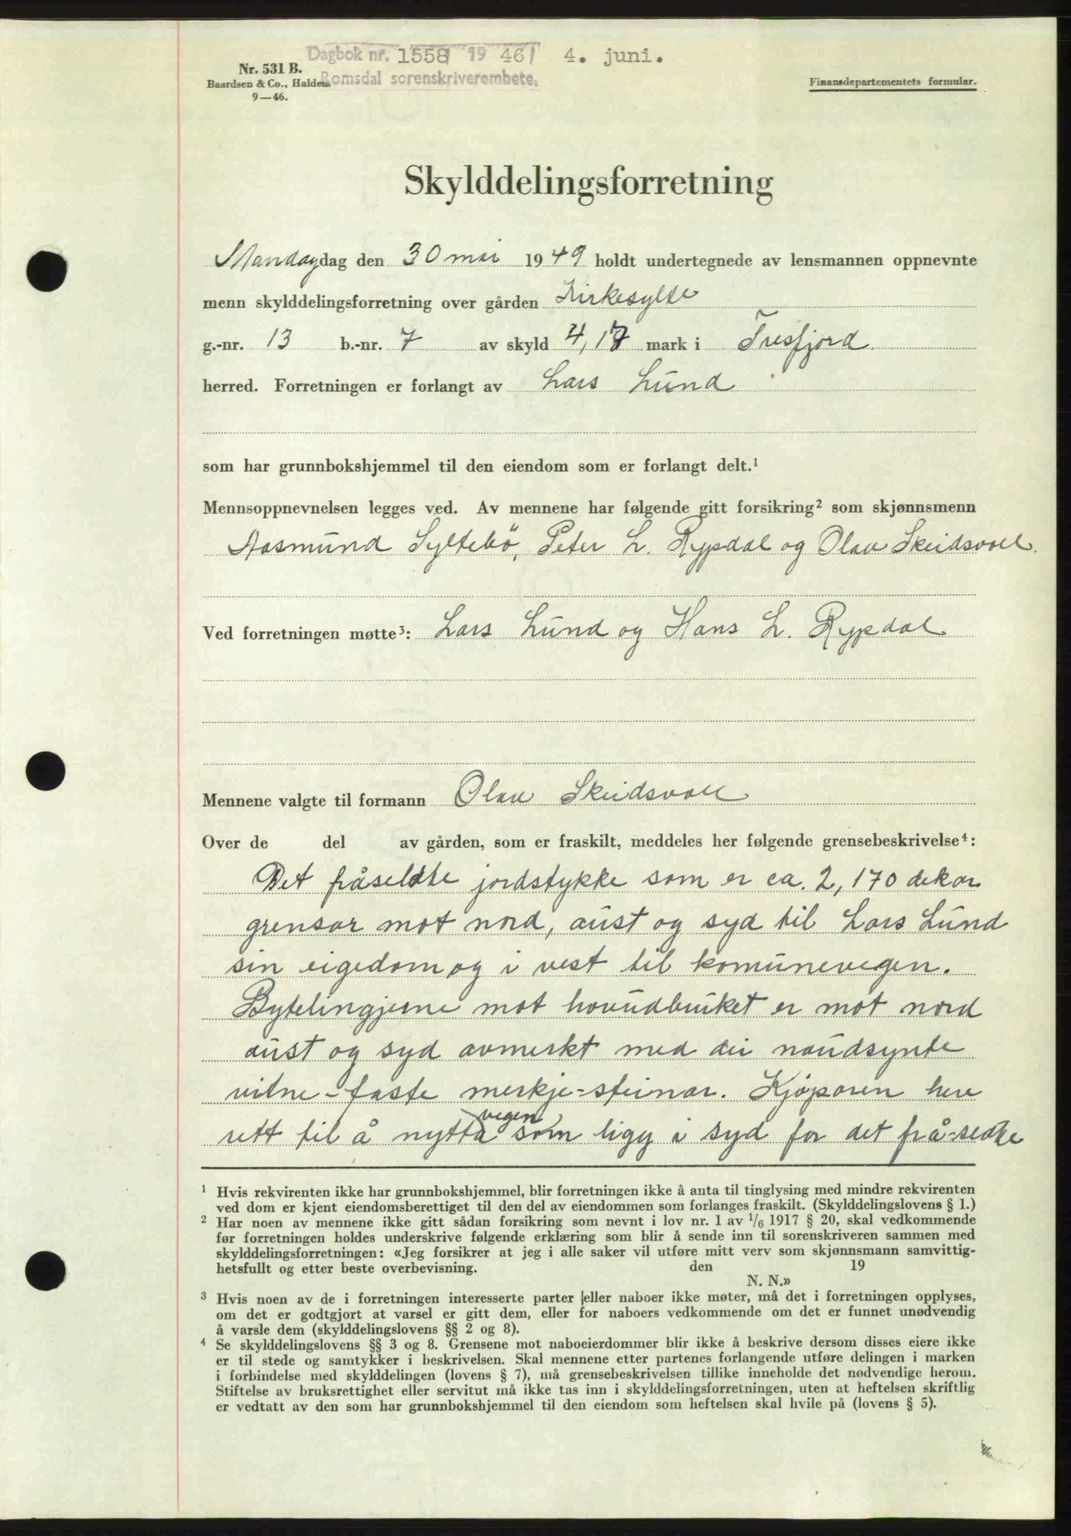 Dagbok nr. 1558 19 46/ 4. juni.
Nr. 531 B.
Baardsen & Co., Halden
9—46.
Romsdal sorenskriverembete.
Finansdepartementets formular.
Skylddelingsforretning
Mandag dag den 30 mai 1949 holdt undertegnede av lensmannen oppnevnte
menn skylddelingsforretning over gården Kirkesylte
g.-nr. 13 b.-nr. 7 av skyld 4,17 mark i Tresfjord
herred. Forretningen er forlangt av Lars Lund
som har grunnbokshjemmel til den eiendom som er forlangt delt.¹
Mennsoppnevnelsen legges ved. Av mennene har følgende gitt forsikring² som skjønnsmenn
Aasmund Syltebö, Peter L. Rypdal og Olav Skeidsvoll.
Ved forretningen møtte³: Lars Lund og Hans L. Rypdal
Mennene valgte til formann Olav Skeidsvoll
Over de del av gården, som er fraskilt, meddeles her følgende grensebeskrivelse⁴:
Det fråseldte jordstykke som er ca. 2,170 dekar
grensar mot nord, aust og syd til Lars Lund
sin eigedom og i vest til komunevegen.
Bytelingjerne mot hovudbruket er mot nord
aust og syd avmerkt med dei naudsynte
vitne-faste merkje-steinar. Kjøparen heve
rett til å nytta vegen som ligg i syd for det frå-seldte
¹ Hvis rekvirenten ikke har grunnbokshjemmel, blir forretningen ikke å anta til tinglysing med mindre rekvirenten
ved dom er kjent eiendomsberettiget til den del av eiendommen som forlanges fraskilt. (Skylddelingslovens § 1.)
² Har noen av mennene ikke gitt sådan forsikring som nevnt i lov nr. 1 av 1/6 1917 § 20, skal vedkommende
før forretningen holdes underskrive følgende erklæring som blir å sende inn til sorenskriveren sammen med
skylddelingsforretningen: «Jeg forsikrer at jeg i alle saker vil utføre mitt verv som skjønnsmann samvittig-
hetsfullt og etter beste overbevisning. den 19
N. N.»
³ Hvis noen av de i forretningen interesserte parter eller naboer ikke møter, må det i forretningen opplyses,
om det er godtgjort at varsel er gitt dem, eller for naboers vedkommende om det er funnet unødvendig
å varsle dem (skylddelingslovens §§ 2 og 8).
⁴ Se skylddelingslovens §§ 3 og 8. Grensene mot naboeierdommer blir ikke å beskrive dersom disses eiere ikke
er til stede og samtykker i beskrivelsen. Skal mennene etter partenes forlangende utføre delingen i marken
i forbindelse med skylddelingen (lovens § 7), må grensebeskrivelsen tillike inneholde det nødvendige herom.
Stiftelse av bruksrettighet eller servitut må ikke tas inn i skylddelingsforretningen, uten at heftelsen skriftlig
er vedtatt av den som har grunnbokshjemmel til den eiendom som heftelsen skal hvile på (lovens § 5).